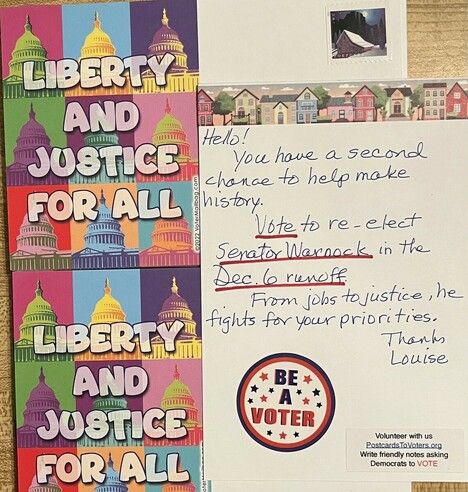 LIBERTY
AND
JUSTICE
FOR ALL
©2022 VoterMailbag.com
LIBERTY
AND
JUSTICE
FOR ALL
Hello!
You have a second
chance to help make
history.
Vote to re-elect
Senator Warnock in the
Dec. 6 runoff.
From jobs to justice, he
fights for your priorities.
Thanks
Louise
BE
A
VOTER
Volunteer with us
PostcardsToVoters.org
Write friendly notes asking
Democrats to VOTE